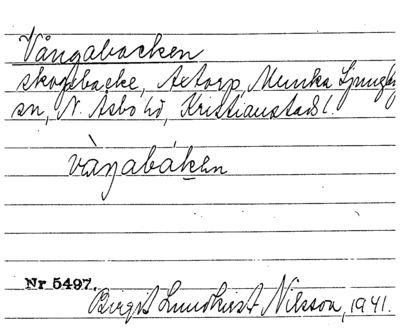 Vångabacken
skogsbacke, Axtorp, Munka Ljungby
sn, N. Åsbo hd, Kristianstads l.
vàŋabáken
Nr 5497.
Birgit Lundkvist Nilsson, 1941.